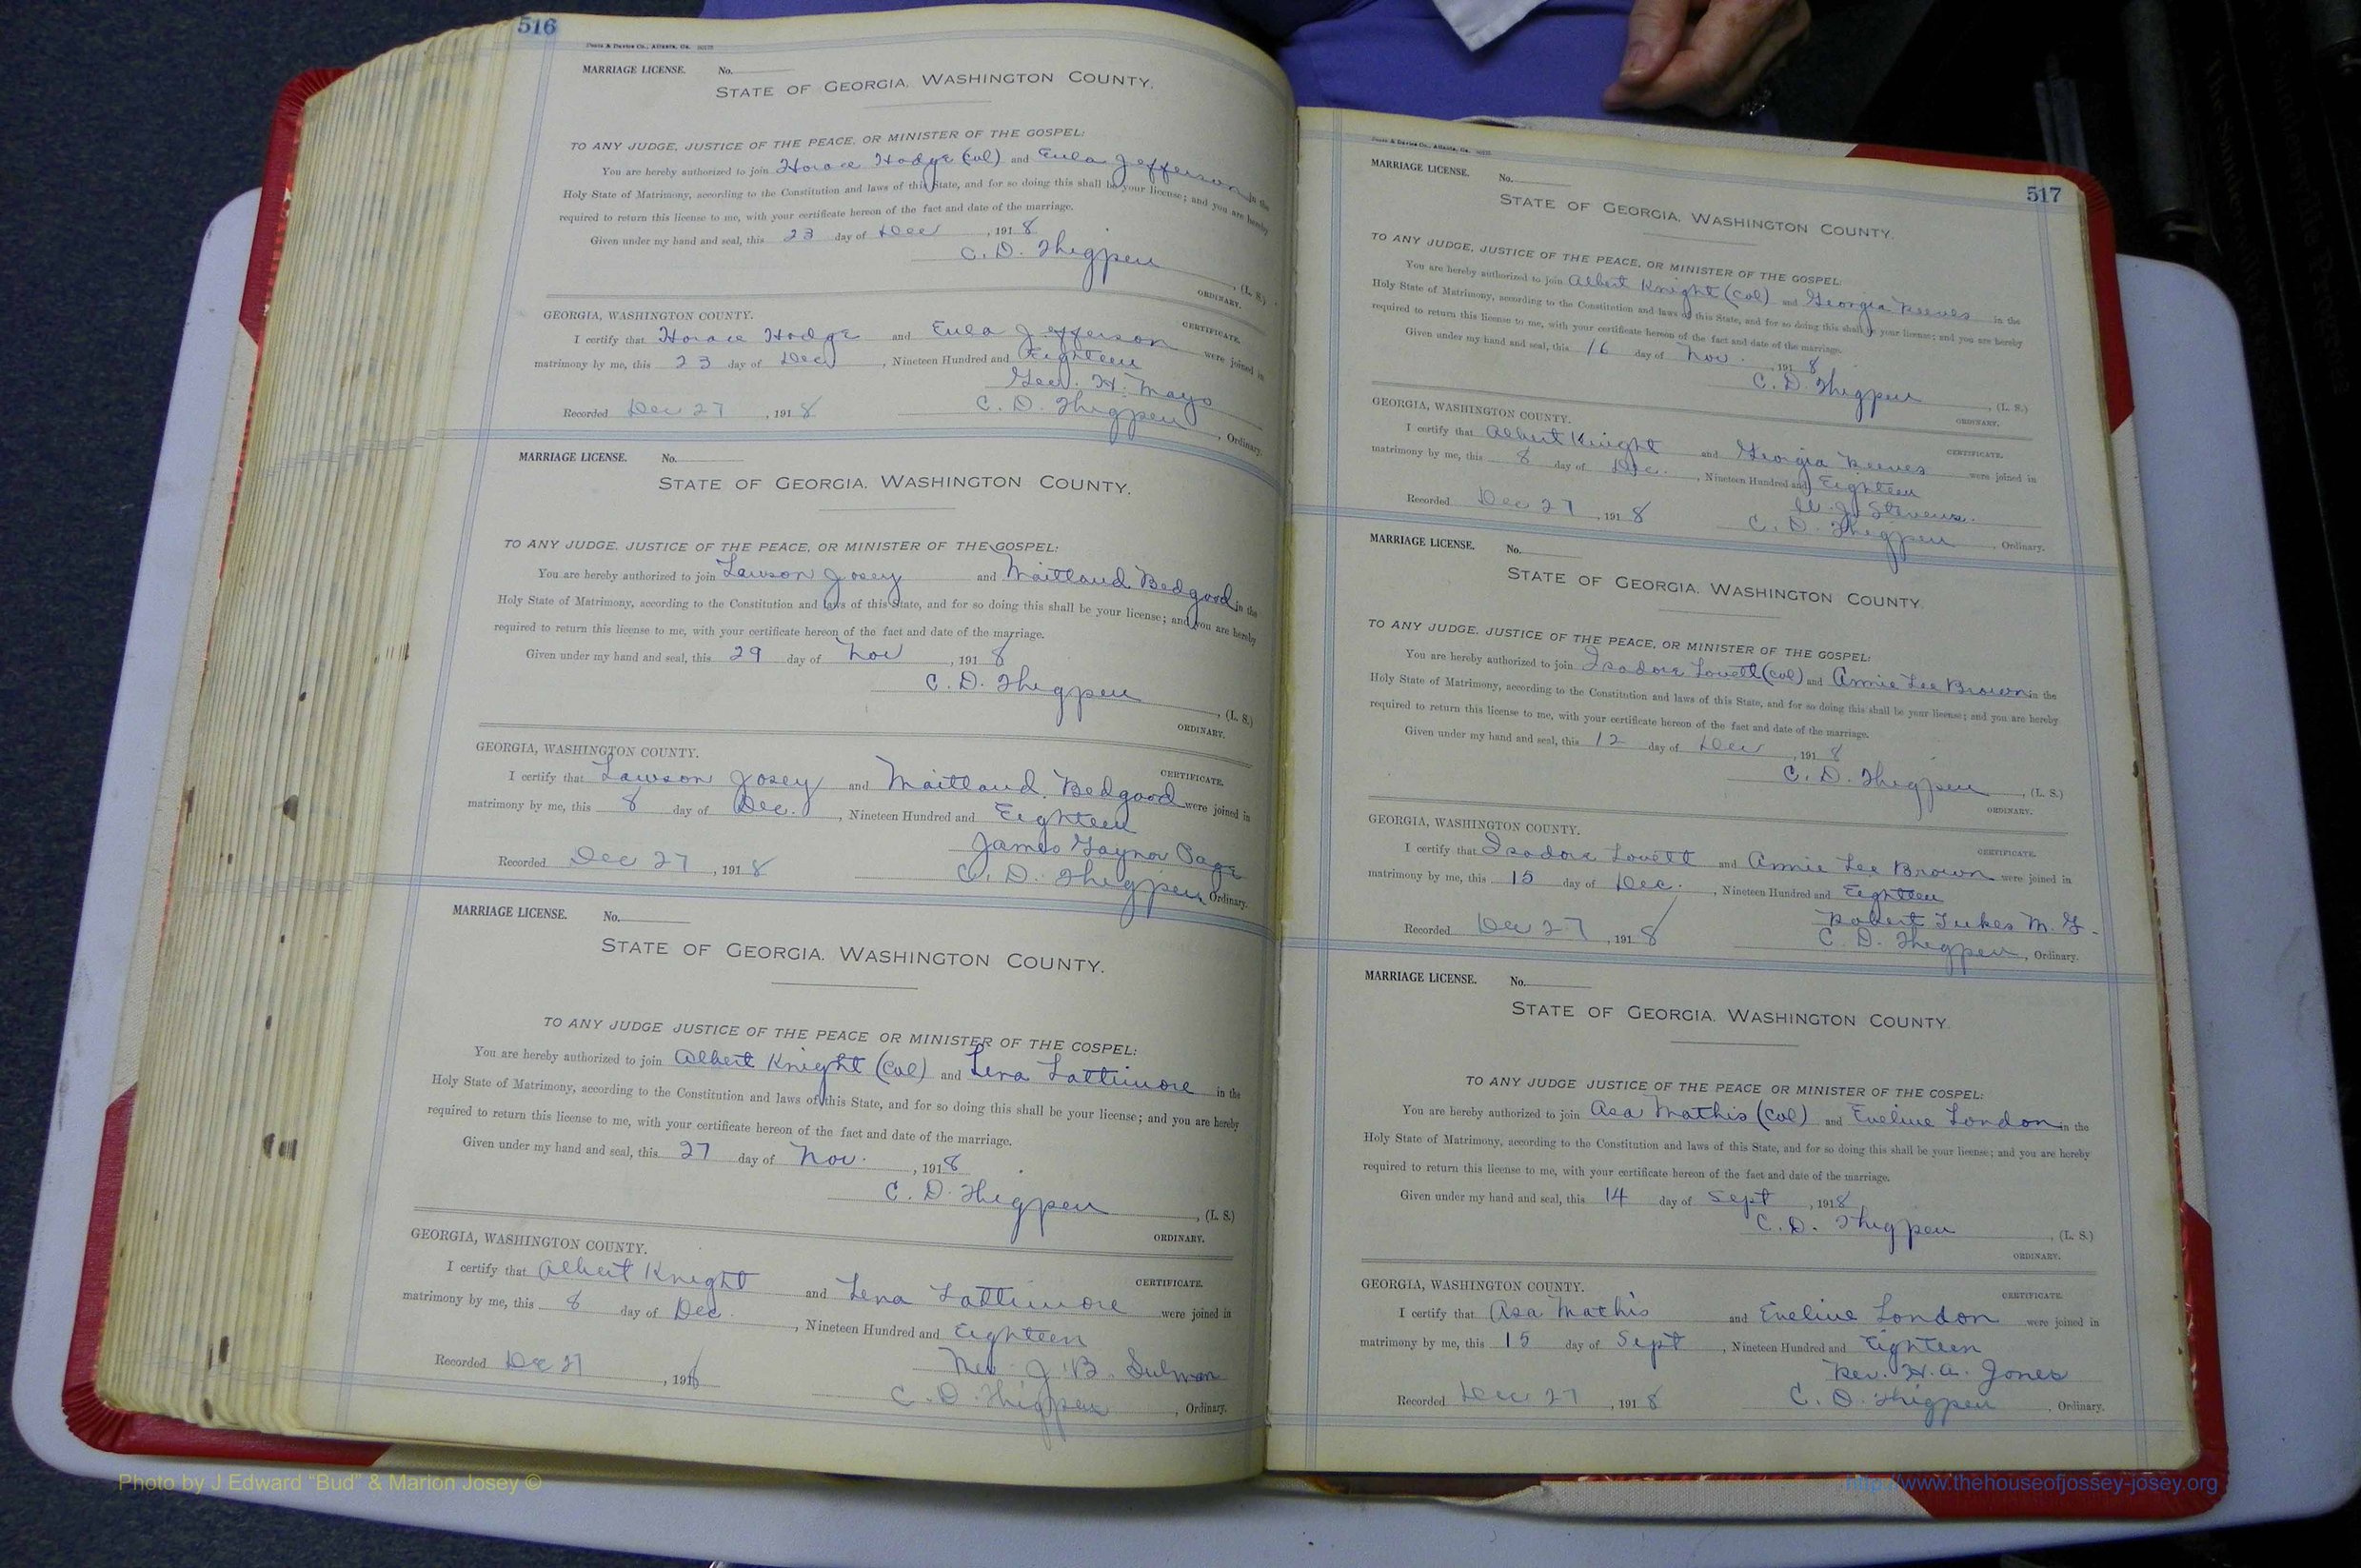 516
MARRIAGE LICENSE. No.
STATE OF GEORGIA, WASHINGTON COUNTY.
TO ANY JUDGE, JUSTICE OF THE PEACE, OR MINISTER OF THE GOSPEL:
You are hereby authorized to join Horace Hodge (Col) and Eula Jefferson in the
Holy State of Matrimony, according to the Constitution and laws of this State, and for so doing this shall be your license; and you are hereby
required to return this license to me, with your certificate hereon of the fact and date of the marriage.
Given under my hand and seal, this 23 day of Dec, 1918
C. D. Thigpen, (L. S.)
ORDINARY.
GEORGIA, WASHINGTON COUNTY.
CERTIFICATE.
I certify that Horace Hodge and Eula Jefferson were joined in
matrimony by me, this 23 day of Dec, Nineteen Hundred and Eighteen
Geo. H. Mays
Recorded Dec 27, 1918 C. D. Thigpen, Ordinary.
MARRIAGE LICENSE. No.
STATE OF GEORGIA. WASHINGTON COUNTY.
TO ANY JUDGE, JUSTICE OF THE PEACE, OR MINISTER OF THE GOSPEL:
You are hereby authorized to join Lawson Josey and Maitland Bedgood in the
Holy State of Matrimony, according to the Constitution and laws of this State, and for so doing this shall be your license; and you are hereby
required to return this license to me, with your certificate hereon of the fact and date of the marriage.
Given under my hand and seal, this 29 day of Nov, 1918
C. D. Thigpen, (L. S.)
ORDINARY.
GEORGIA, WASHINGTON COUNTY.
CERTIFICATE.
I certify that Lawson Josey and Maitland Bedgood were joined in
matrimony by me, this 8 day of Dec., Nineteen Hundred and Eighteen
James Gaynor Page
Recorded Dec 27, 1918 C. D. Thigpen, Ordinary.
MARRIAGE LICENSE. No.
STATE OF GEORGIA. WASHINGTON COUNTY.
TO ANY JUDGE JUSTICE OF THE PEACE OR MINISTER OF THE COSPEL:
You are hereby authorized to join Albert Knight (Col) and Lena Lattimore in the
Holy State of Matrimony, according to the Constitution and laws of this State, and for so doing this shall be your license; and you are hereby
required to return this license to me, with your certificate hereon of the fact and date of the marriage.
Given under my hand and seal, this 27 day of Nov., 1918
C. D. Thigpen, (L. S.)
ORDINARY.
GEORGIA, WASHINGTON COUNTY.
CERTIFICATE.
I certify that Albert Knight and Lena Lattimore were joined in
matrimony by me, this 8 day of Dec., Nineteen Hundred and Eighteen
Rev J. B.
Recorded Dec 27, 191 C. D. Thigpen, Ordinary.
517
MARRIAGE LICENSE. No.
STATE OF GEORGIA, WASHINGTON COUNTY.
TO ANY JUDGE, JUSTICE OF THE PEACE, OR MINISTER OF THE GOSPEL:
You are hereby authorized to join Albert Knight (Col) and Georgia Reeves in the
Holy State of Matrimony, according to the Constitution and laws of this State, and for so doing this shall be your license; and you are hereby
required to return this license to me, with your certificate hereon of the fact and date of the marriage.
Given under my hand and seal, this 16 day of Nov., 1918
C. D. Thigpen, (L. S.)
ORDINARY.
GEORGIA, WASHINGTON COUNTY.
CERTIFICATE.
I certify that Albert Knight and Georgia Reeves were joined in
matrimony by me, this 8 day of Dec., Nineteen Hundred and Eighteen
J. Stevens.
Recorded Dec 27, 1918 C. D. Thigpen, Ordinary.
MARRIAGE LICENSE. No.
STATE OF GEORGIA, WASHINGTON COUNTY.
TO ANY JUDGE, JUSTICE OF THE PEACE, OR MINISTER OF THE GOSPEL:
You are hereby authorized to join Isadore Lovett (Col) and Annie Lee Brown in the
Holy State of Matrimony, according to the Constitution and laws of this State, and for so doing this shall be your license; and you are hereby
required to return this license to me, with your certificate hereon of the fact and date of the marriage.
Given under my hand and seal, this 12 day of Dec, 1918
C. D. Thigpen, (L. S.)
ORDINARY.
GEORGIA, WASHINGTON COUNTY.
CERTIFICATE.
I certify that Isadore Lovett and Annie Lee Brown were joined in
matrimony by me, this 15 day of Dec., Nineteen Hundred and Eighteen
Robert Tukes M. G.
Recorded Dec 27, 1918 C. D. Thigpen, Ordinary.
MARRIAGE LICENSE. No.
STATE OF GEORGIA. WASHINGTON COUNTY.
TO ANY JUDGE JUSTICE OF THE PEACE OR MINISTER OF THE COSPEL:
You are hereby authorized to join Asa Mathis (Col) and Eveline London in the
Holy State of Matrimony, according to the Constitution and laws of this State, and for so doing this shall be your license; and you are hereby
required to return this license to me, with your certificate hereon of the fact and date of the marriage.
Given under my hand and seal, this 14 day of Sept, 1918
C. D. Thigpen, (L. S.)
ORDINARY.
GEORGIA, WASHINGTON COUNTY.
CERTIFICATE.
I certify that Asa Mathis and Eveline London were joined in
matrimony by me, this 15 day of Sept, Nineteen Hundred and Eighteen
Rev. H. A. Jones
Recorded Dec 27, 1918 C. D. Thigpen, Ordinary.
Photo by J Edward “Bud” & Marion Josey ©
http://www.thehouseofjossey-josey.org